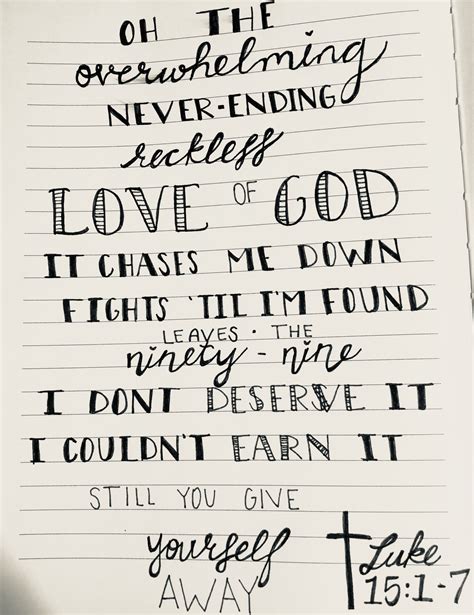 OH THE
overwhelming
NEVER-ENDING
reckless
LOVE OF GOD
IT CHASES ME DOWN
FIGHTS 'TIL I'M FOUND
LEAVES • THE
ninety-nine
I DONT DESERVE IT
I COULDN'T EARN IT
STILL YOU GIVE
yourself
AWAY
Luke
15:1-7